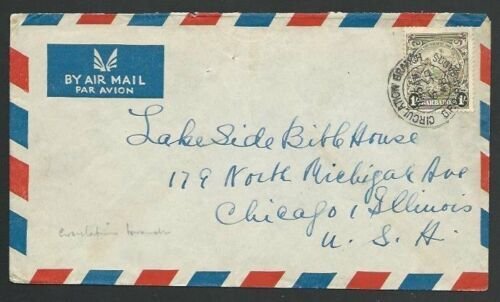 BY AIR MAIL
PAR AVION
CIRCULATION BRANCH
1/-
BARBADOS
1/-
Lake Side Bible House
179 North Michigan Ave
Chicago 1 Illinois
U. S. A.